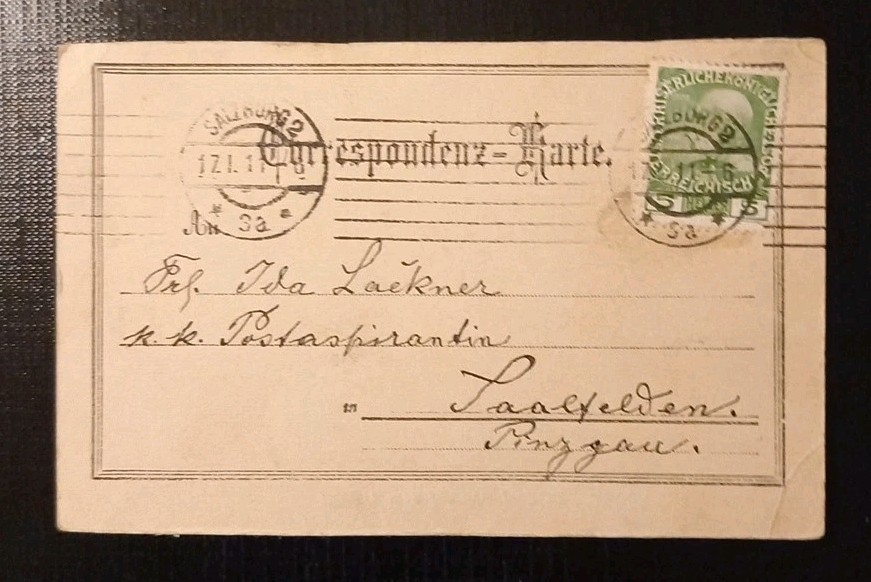 SALZBURG 2
17.I.11
* 3a *
Correspondenz-Karte.
KAISERLICHEKÖNIGLICHE
ÖSTERREICHISCHE
5 5
An
Frl. Ida Lackner
k. k. Postaspirantin
in Saalfelden.
Pinzgau.